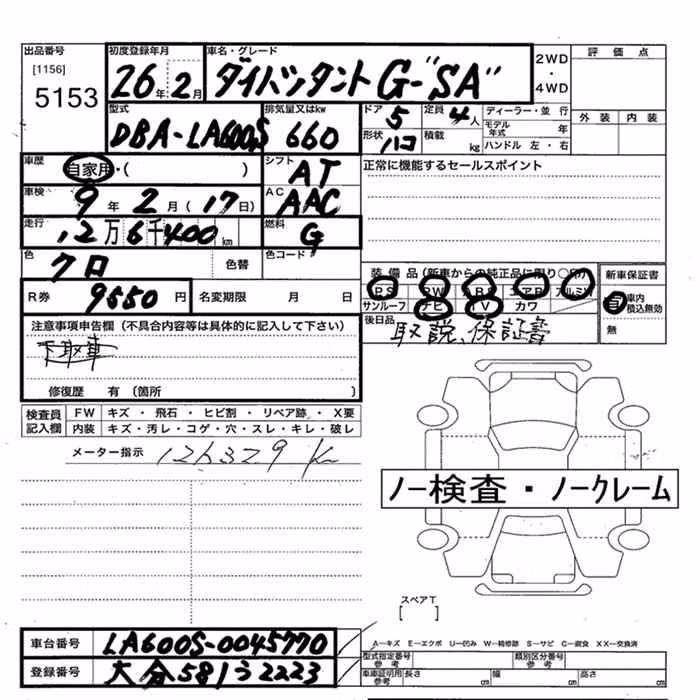 出品番号 初度登録年月 車名・グレード 2WD・4WD 評価点
[1156]
5153 26年2月 ダイハツタント G-"SA"
外装 内装
型式 排気量又はkw ドア 定員 ディーラー・並行
DBA-LA600S 660 5 4人 モデル年式 年
形状 ハコ 積載 kg ハンドル 左・右
車歴 自家用・( ) シフト AT 正常に機能するセールスポイント
車検 9年2月(17日) AC AAC
走行 12万6千400km 燃料 G
色 クロ 色替 色コード
装備品(新車からの純正品に限り○印) 新車保証書
PS PW ABS エアB アルミW
サンルーフ ナビ TV カワ
有 車内積込無効
無
R券 9550円 名変期限 月 日
後日品 取説、保証書
注意事項申告欄(不具合内容等は具体的に記入して下さい)
下取車
修復歴 有(箇所 )
検査員記入欄 FW キズ・飛石・ヒビ割・リペア跡・X要
内装 キズ・汚レ・コゲ・穴・スレ・キレ・破レ
メーター指示 126329 K
ノー検査・ノークレーム
スペアT
[ ]
車台番号 LA600S-0045770
A―キズ E―エクボ U―凹み W―補修跡 S―サビ C―腐食 XX―交換済
登録番号 大分581う2223
型式指定番号 参考 類別区分番号 参考
車庫証明用 参考 長さ cm 幅 cm 高さ cm